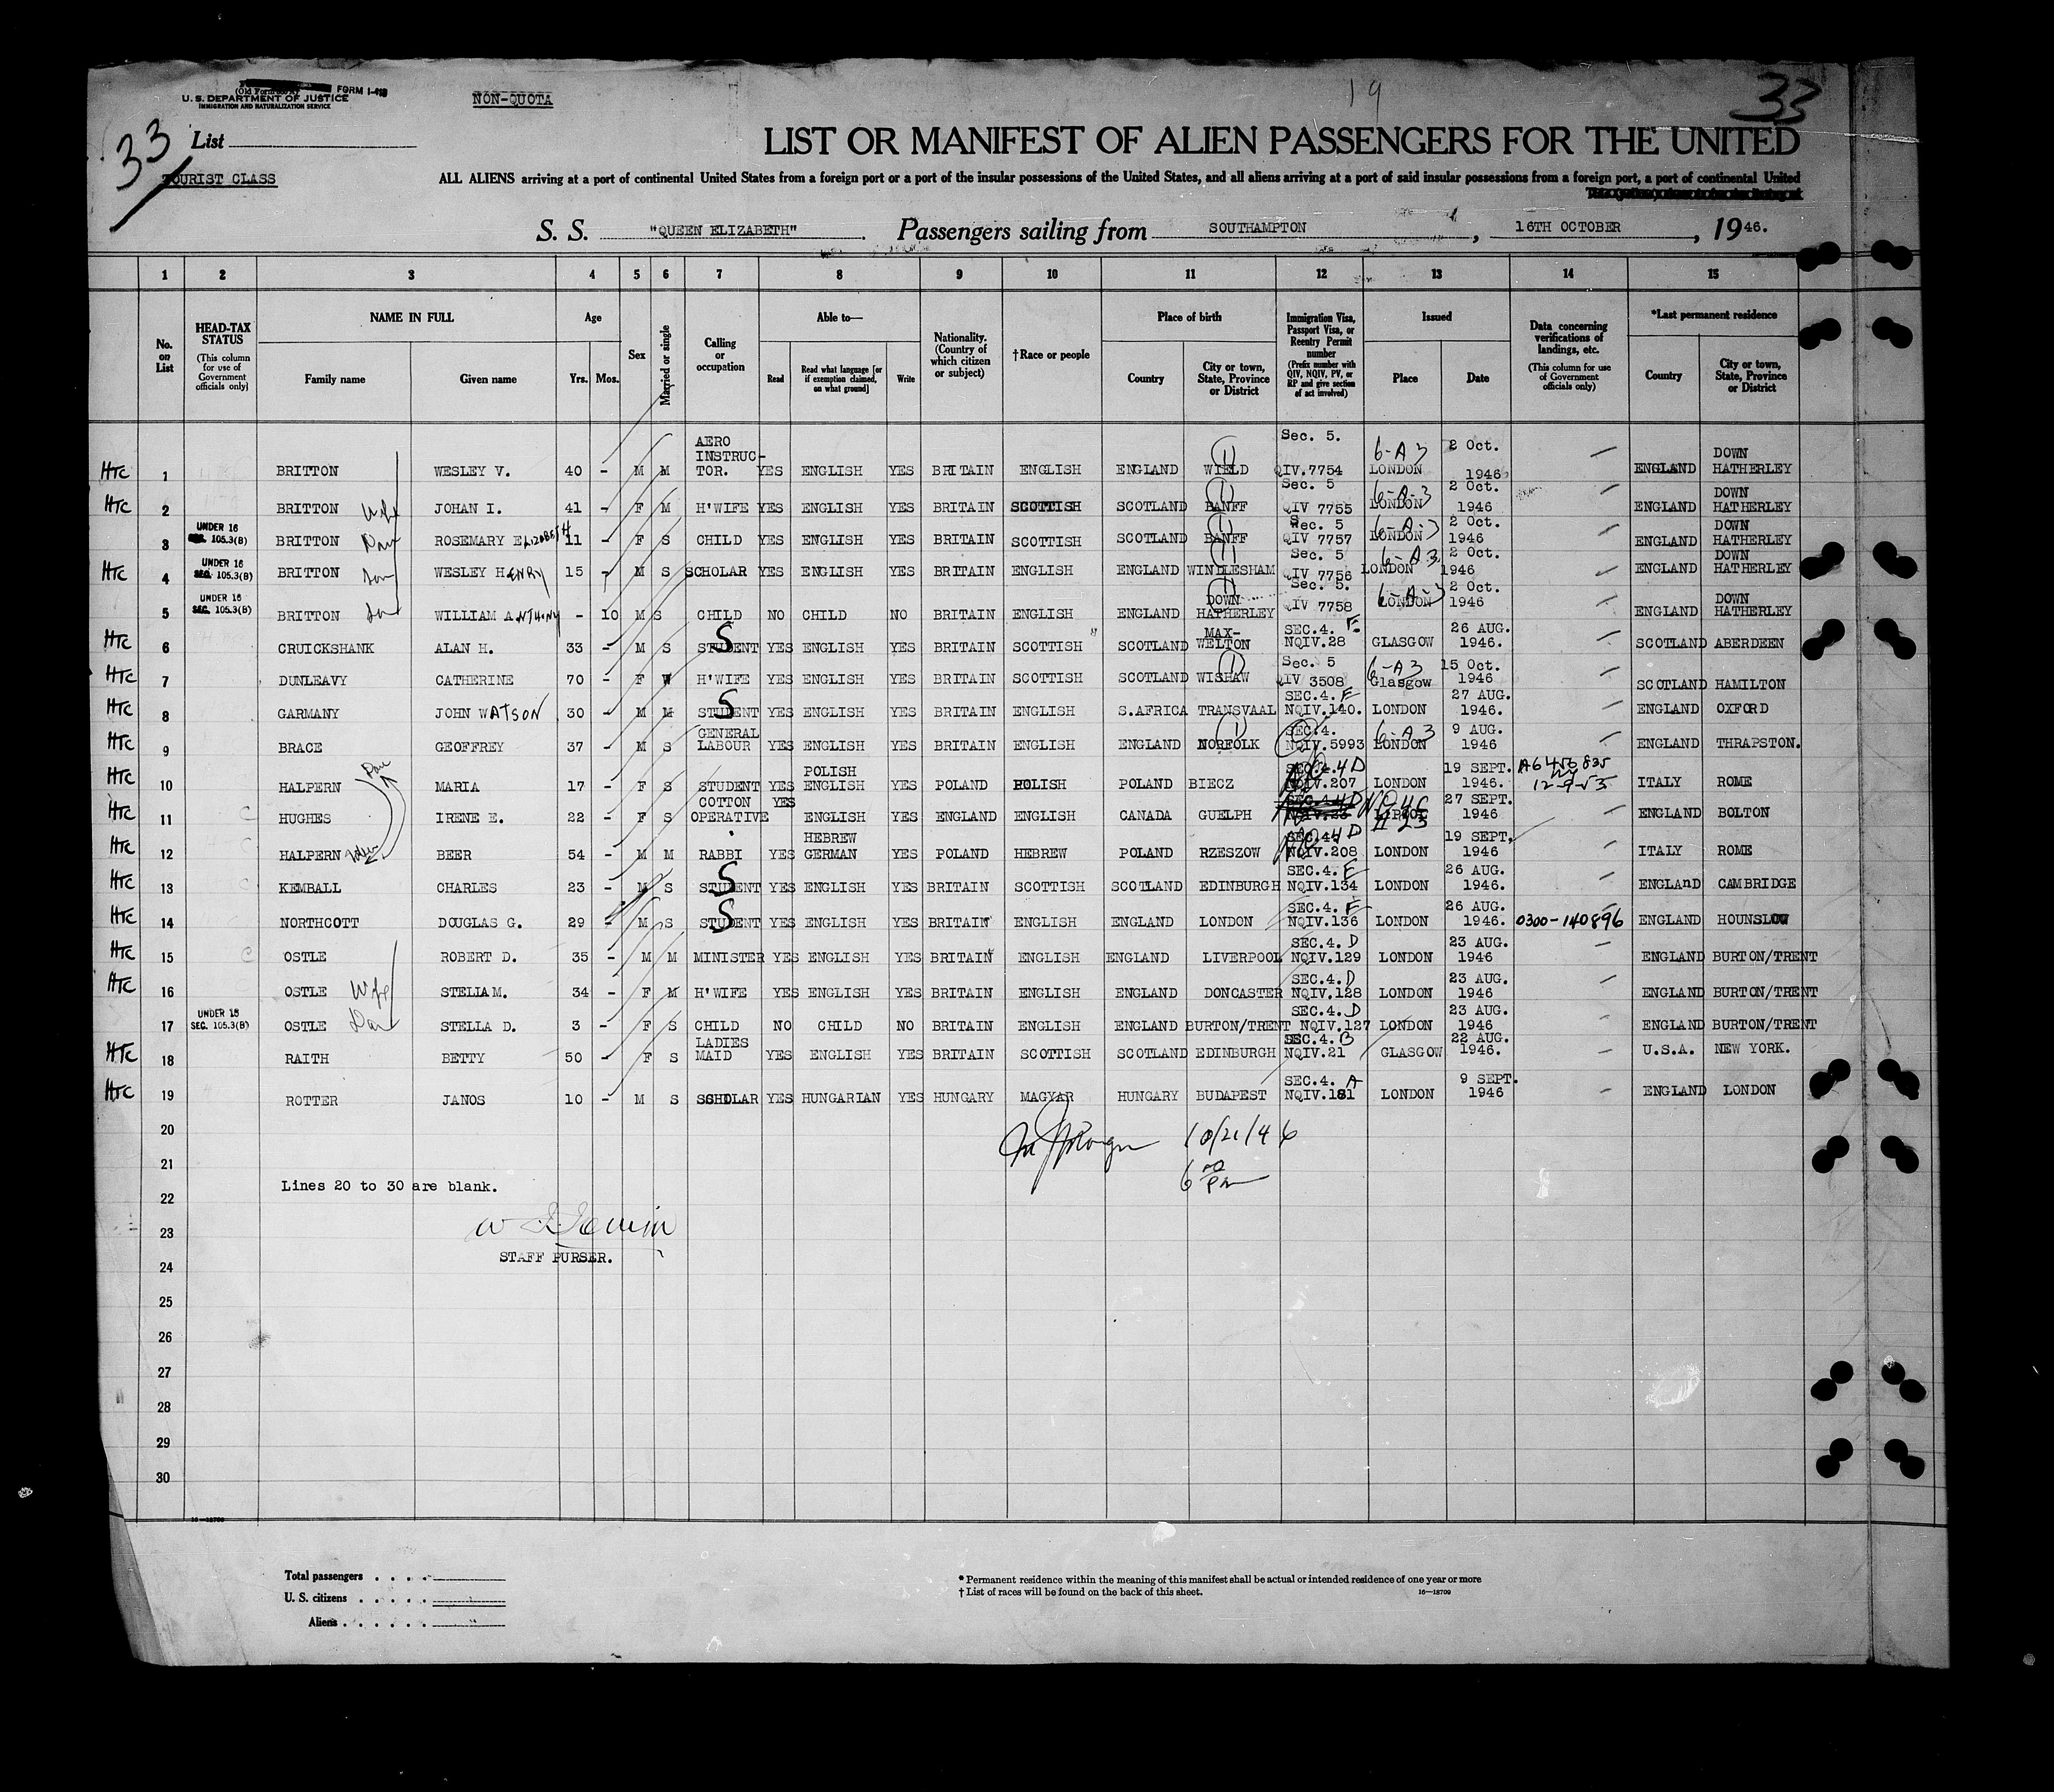 (Old Form 500 A) FORM I-418
U. S. DEPARTMENT OF JUSTICE
IMMIGRATION AND NATURALIZATION SERVICE
NON-QUOTA
19
33
33
List
TOURIST CLASS
LIST OR MANIFEST OF ALIEN PASSENGERS FOR THE UNITED
ALL ALIENS arriving at a port of continental United States from a foreign port or a port of the insular possessions of the United States, and all aliens arriving at a port of said insular possessions from a foreign port, a port of continental United
S. S. "QUEEN ELIZABETH" Passengers sailing from SOUTHAMPTON, 16TH OCTOBER, 1946.
1 2 3 4 5 6 7 8 9 10 11 12 13 14 15
No. on List
HEAD-TAX STATUS (This column for use of Government officials only)
NAME IN FULL Family name Given name
Age Yrs. Mos.
Sex
Married or single
Calling or occupation
Able to— Read Read what language [or if exemption claimed, on what ground] Write
Nationality. (Country of which citizen or subject)
†Race or people
Place of birth Country City or town, State, Province or District
Immigration Visa, Passport Visa, or Reentry Permit number (Prefix number with QIV, NQIV, PV, or RP and give section of act involved)
Issued Place Date
Data concerning verifications of landings, etc. (This column for use of Government officials only)
*Last permanent residence Country City or town, State, Province or District
HTC 1 BRITTON WESLEY V. 40 - M M AERO INSTRUC-TOR. YES ENGLISH YES BRITAIN ENGLISH ENGLAND WIELD Sec. 5. QIV.7754 6-A3 LONDON 2 Oct. 1946 ENGLAND DOWN HATHERLEY
HTC 2 BRITTON Wife JOHAN I. 41 - F M H'WIFE YES ENGLISH YES BRITAIN SCOTTISH SCOTLAND BANFF Sec. 5 QIV 7755 6-A-3 LONDON 2 Oct. 1946 ENGLAND DOWN HATHERLEY
3 UNDER 16 SEC. 105.3(B) BRITTON Dau ROSEMARY ELIZABETH 11 - F S CHILD YES ENGLISH YES BRITAIN SCOTTISH SCOTLAND BANFF Sec. 5 QIV 7757 6-A-3 LONDON 2 Oct. 1946 ENGLAND DOWN HATHERLEY
HTC 4 UNDER 16 SEC. 105.3(B) BRITTON Son WESLEY HENRY 15 - M S SCHOLAR YES ENGLISH YES BRITAIN ENGLISH ENGLAND WINDLESHAM Sec. 5 QIV 7756 6-A3 LONDON 2 Oct. 1946 ENGLAND DOWN HATHERLEY
5 UNDER 16 SEC. 105.3(B) BRITTON Son WILLIAM ANTHONY - 10 M S CHILD NO CHILD NO BRITAIN ENGLISH ENGLAND DOWN HATHERLEY Sec. 5. QIV 7758 6-A-3 LONDON 2 Oct. 1946 ENGLAND DOWN HATHERLEY
HTC 6 CRUICKSHANK ALAN H. 33 - M S STUDENT S YES ENGLISH YES BRITAIN SCOTTISH SCOTLAND MAX-WELTON SEC.4. E NQIV.28 GLASGOW 26 AUG. 1946. SCOTLAND ABERDEEN
HTC 7 DUNLEAVY CATHERINE 70 - F W H'WIFE YES ENGLISH YES BRITAIN SCOTTISH SCOTLAND WISHAW Sec. 5 QIV 3508 6-A3 Glasgow 15 Oct. 1946 SCOTLAND HAMILTON
HTC 8 GARMANY JOHN WATSON 30 - M M STUDENT S YES ENGLISH YES BRITAIN ENGLISH S.AFRICA TRANSVAAL SEC.4. E NQIV.140. LONDON 27 AUG. 1946. ENGLAND OXFORD
HTC 9 BRACE GEOFFREY 37 - M S GENERAL LABOUR YES ENGLISH YES BRITAIN ENGLISH ENGLAND NORFOLK SEC.4. NQIV.5993 6-A3 LONDON 9 AUG. 1946 ENGLAND THRAPSTON.
HTC 10 HALPERN Dau MARIA 17 - F S STUDENT YES POLISH ENGLISH YES POLAND POLISH POLAND BIECZ SEC.4 D NQIV.207 LONDON 19 SEPT. 1946. A6456835 12-9-53 ITALY ROME
HTC 11 HUGHES IRENE E. 22 - F S COTTON OPERATIVE YES ENGLISH YES ENGLAND ENGLISH CANADA GUELPH 27 SEPT. 1946 ENGLAND BOLTON
HTC 12 HALPERN BEER 54 - M M RABBI YES HEBREW GERMAN YES POLAND HEBREW POLAND RZESZOW SEC.4 D NQIV.208 LONDON 19 SEPT. 1946 ITALY ROME
HTC 13 KEMBALL CHARLES 23 - M S STUDENT S YES ENGLISH YES BRITAIN SCOTTISH SCOTLAND EDINBURGH SEC.4. E NQIV.134 LONDON 26 AUG. 1946. ENGLAnD CAMBRIDGE
HTC 14 NORTHCOTT DOUGLAS G. 29 - M S STUDENT S YES ENGLISH YES BRITAIN ENGLISH ENGLAND LONDON SEC.4. E NQIV.136 LONDON 26 AUG. 1946. 0300-140896 ENGLAND HOUNSLOW
HTC 15 OSTLE ROBERT D. 35 - M M MINISTER YES ENGLISH YES BRITAIN ENGLISH ENGLAND LIVERPOOL SEC.4. D NQIV.129 LONDON 23 AUG. 1946 ENGLAND BURTON/TRENT
HTC 16 OSTLE Wife STELLA M. 34 - F M H'WIFE YES ENGLISH YES BRITAIN ENGLISH ENGLAND DONCASTER SEC.4. D NQIV.128 LONDON 23 AUG. 1946 ENGLAND BURTON/TRENT
17 UNDER 16 SEC. 105.3(B) OSTLE Dau STELLA D. 3 - F S CHILD NO CHILD NO BRITAIN ENGLISH ENGLAND BURTON/TRENT SEC.4. D NQIV.127 LONDON 23 AUG. 1946 ENGLAND BURTON/TRENT
HTC 18 RAITH BETTY 50 - F S LADIES MAID YES ENGLISH YES BRITAIN SCOTTISH SCOTLAND EDINBURGH SEC.4. B NQIV.21 GLASGOW 22 AUG. 1946. U.S.A. NEW YORK.
HTC 19 ROTTER JANOS 10 - M S SCHOLAR YES HUNGARIAN YES HUNGARY MAGYAR HUNGARY BUDAPEST SEC.4. A NQIV.181 LONDON 9 SEPT. 1946 ENGLAND LONDON
20 10/21/46
21 6 00 Pm
Lines 20 to 30 are blank.
22
23
STAFF PURSER.
24
25
26
27
28
29
30
Total passengers
U. S. citizens
Aliens
* Permanent residence within the meaning of this manifest shall be actual or intended residence of one year or more
† List of races will be found on the back of this sheet.
16—18709